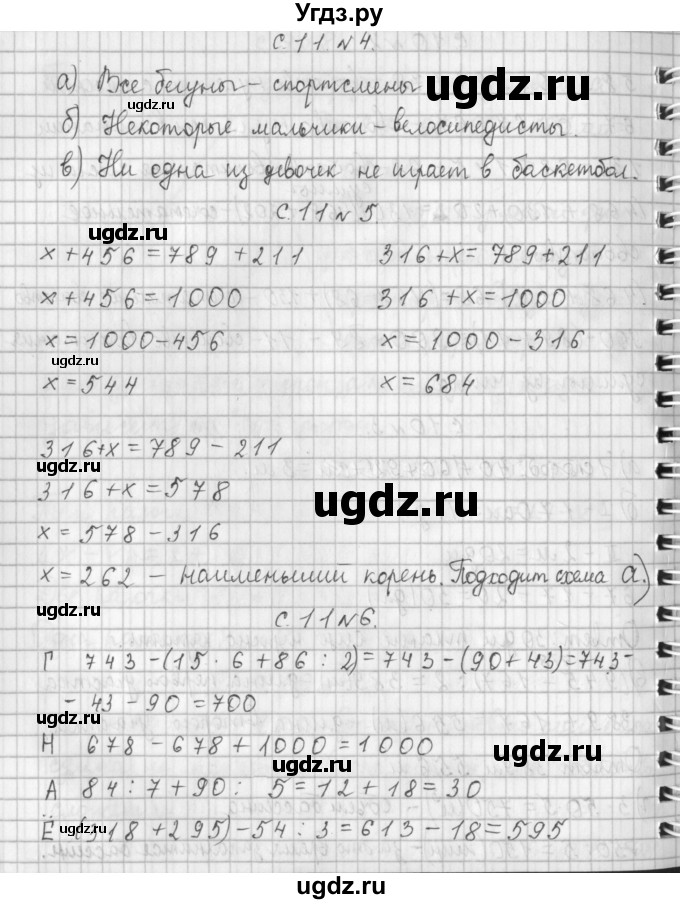 Угдз.ру
С. 11. № 4.
а) Все бегуны – спортсмены
б) Некоторые мальчики – велосипедисты.
в) Ни одна из девочек не играет в баскетбол.
С. 11 № 5
x + 456 = 789 + 211
316 + x = 789 + 211
x + 456 = 1000
316 + x = 1000
x = 1000 – 456
x = 1000 – 316
x = 544
x = 684
316 + x = 789 – 211
316 + x = 578
x = 578 – 316
x = 262 – наименьший корень. Подходит схема а.)
С. 11 № 6.
Г 743 – (15 · 6 + 86 : 2) = 743 – (90 + 43) = 743 –
– 43 – 90 = 700
Н 678 – 678 + 1000 = 1000
А 84 : 7 + 90 : 5 = 12 + 18 = 30
Ё (318 + 295) – 54 : 3 = 613 – 18 = 595
ugdz.ru
ugdz.ru
ugdz.ru
ugdz.ru
ugdz.ru
ugdz.ru
ugdz.ru
ugdz.ru
ugdz.ru
ugdz.ru
ugdz.ru
ugdz.ru